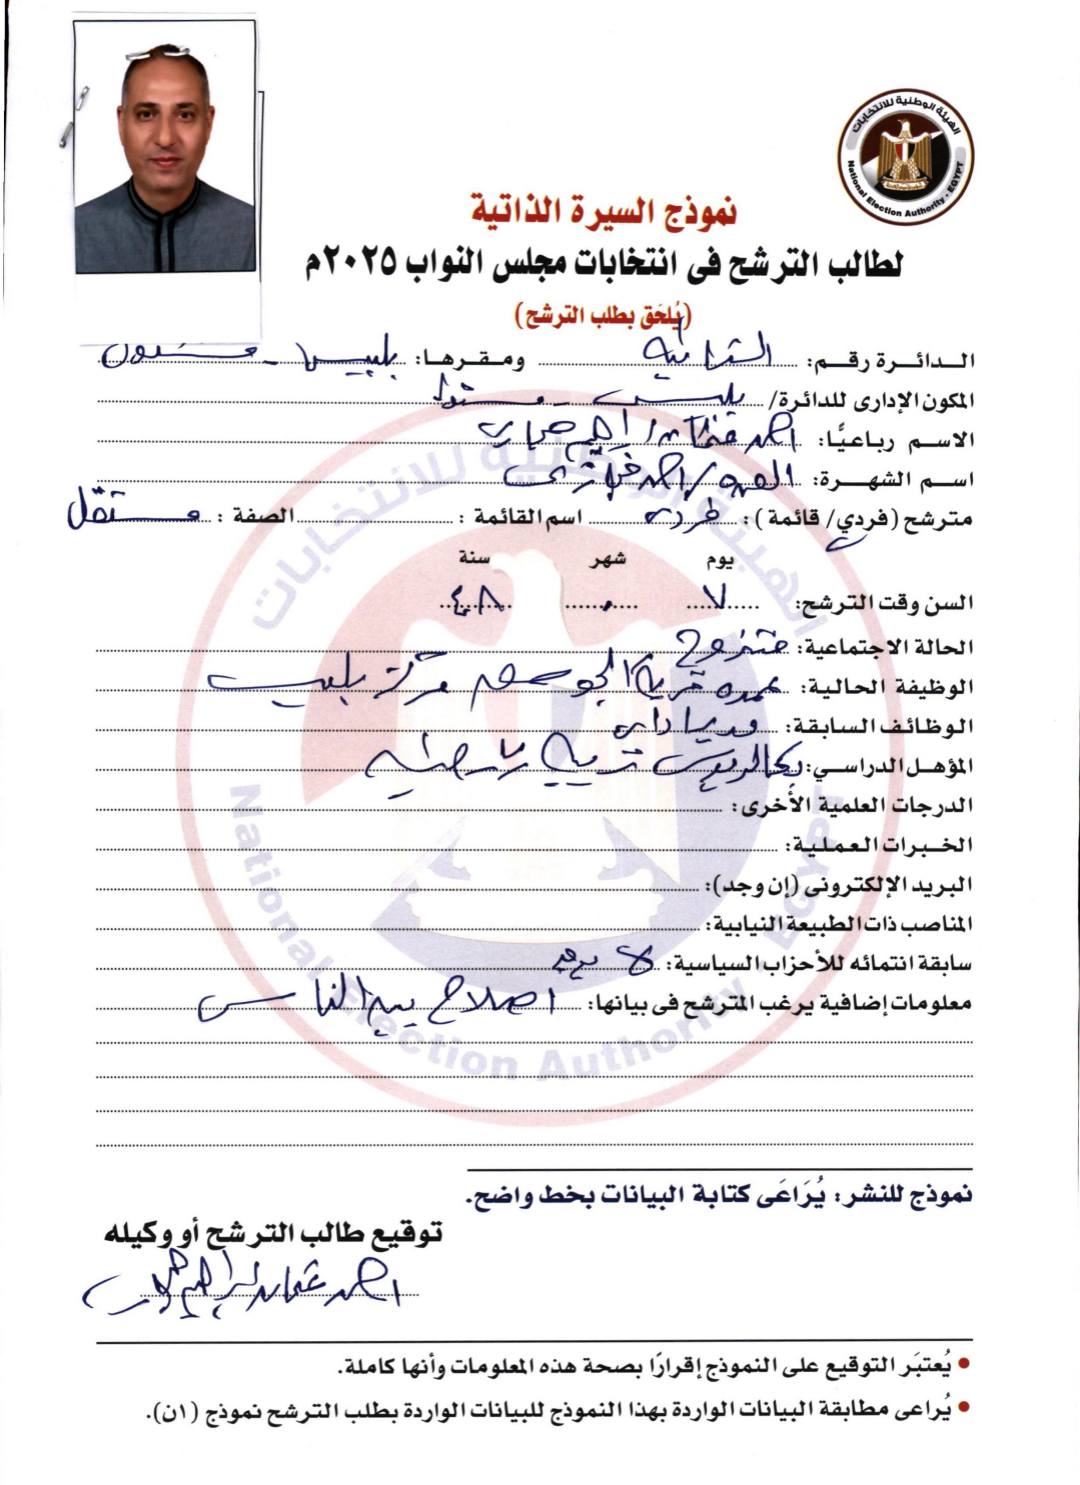 الهيئة الوطنية للانتخابات
National Election Authority - EGYPT
نموذج السيرة الذاتية
لطالب الترشح فى انتخابات مجلس النواب ٢٠٢٥م
(يُلحَق بطلب الترشح)
الدائرة رقم: الثانية ومقرها: بلبيس - مشتول
المكون الإدارى للدائرة/ بلبيس - مشتول
الاسم رباعيًا: احمد ابراهيم
اسم الشهرة: العمدة / احمد
مترشح (فردي/ قائمة): فردى اسم القائمة: الصفة: مستقل
يوم شهر سنة
السن وقت الترشح: ٧ ٠ ٤٨
الحالة الاجتماعية: متزوج
الوظيفة الحالية: عمدة قرية الجوسق مركز بلبيس
الوظائف السابقة:
المؤهل الدراسي: بكالوريوس تربية رياضية
الدرجات العلمية الأخرى:
الخبرات العملية:
البريد الإلكترونى (إن وجد):
المناصب ذات الطبيعة النيابية:
سابقة انتمائه للأحزاب السياسية: لا يوجد
معلومات إضافية يرغب المترشح فى بيانها: اصلاح بين الناس
نموذج للنشر: يُرَاعَى كتابة البيانات بخط واضح.
توقيع طالب الترشح أو وكيله
احمد عثمان ابراهيم
• يُعتبَر التوقيع على النموذج إقرارًا بصحة هذه المعلومات وأنها كاملة.
• يُراعى مطابقة البيانات الواردة بهذا النموذج للبيانات الواردة بطلب الترشح نموذج (١ن).